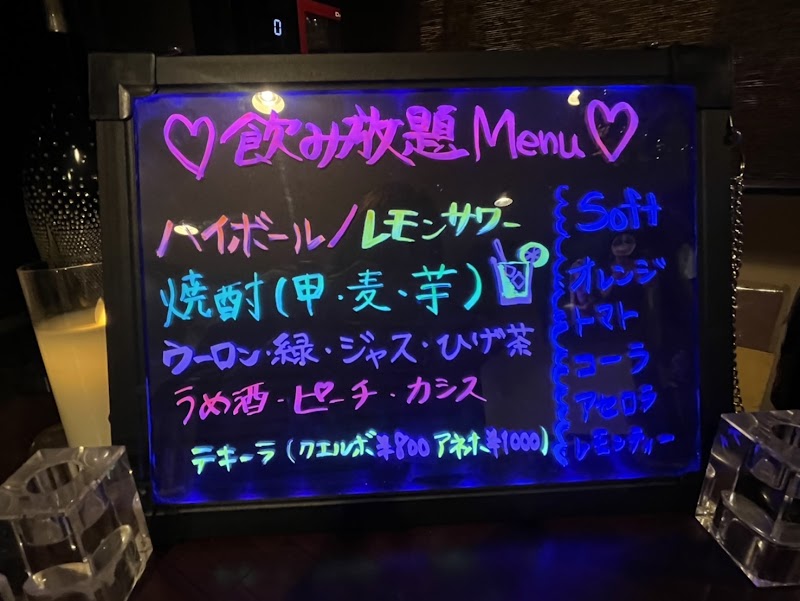 0
♡飲み放題Menu♡
ハイボール/レモンサワー
焼酎(甲・麦・芋)
ウーロン・緑・ジャス・ひげ茶
うめ酒・ピーチ・カシス
テキーラ(クエルボ¥800 アネホ¥1000)
Soft
オレンジ
トマト
コーラ
アセロラ
レモンティー